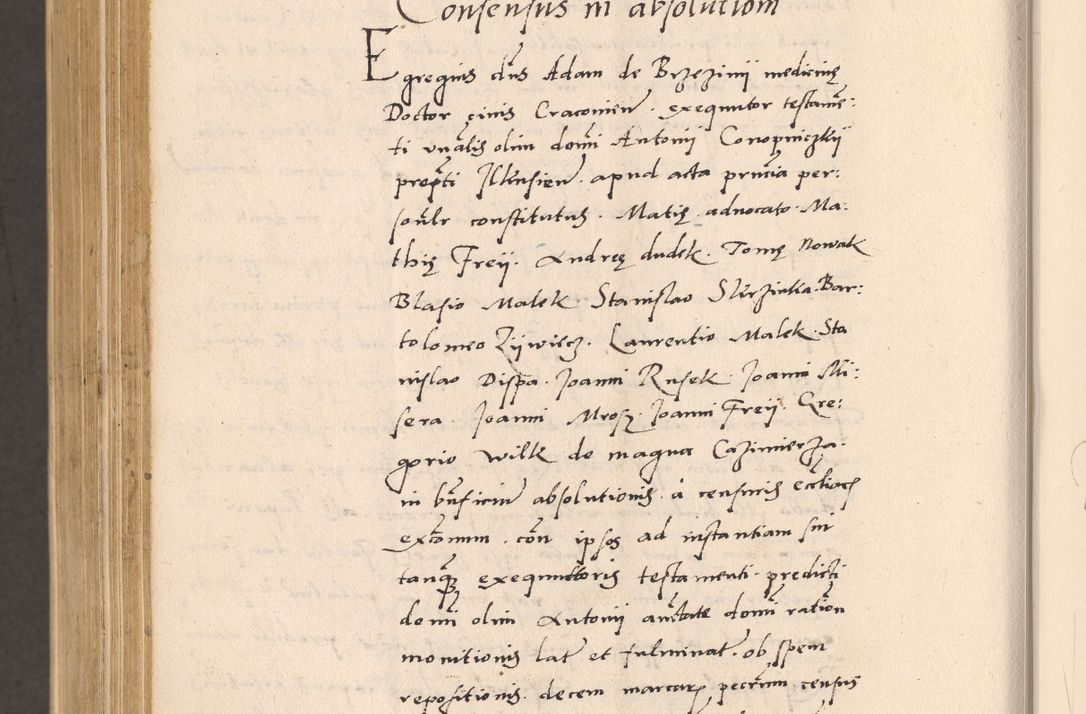 Consensus in absolutiom
Egregius dns Adam de Brzezinij medicinę
Doctor civis Cracovien. exequutor testame:
ti vnalis olim domi Antonij Conopniczkij
prepti Illkusien. apud acta prncia per:
sonlr constitutus. Matię advocato. Ma:
thię Freij. Andreę dudek. Tomę Nowak
Blasio Malek Stanislao Bar-
tolomeo Zijwiecz. Laurentio Malek. Sta
nislao Dispa. Joanni Rusek. Joanni Mi:
sera Joanni Mrosz. Joanni Freij. Gre:
gorio Wilk de magna Cazimierza.
in bnficiu absolutionis. à censuris
excomm. con ipsos ad instantiam sui
tanq exequuttoris testamenti predicti
domi olim Antonij auctate domi ration
monitionis lat et fulminat. ob spem
repositionis. decem marcar pecrum census